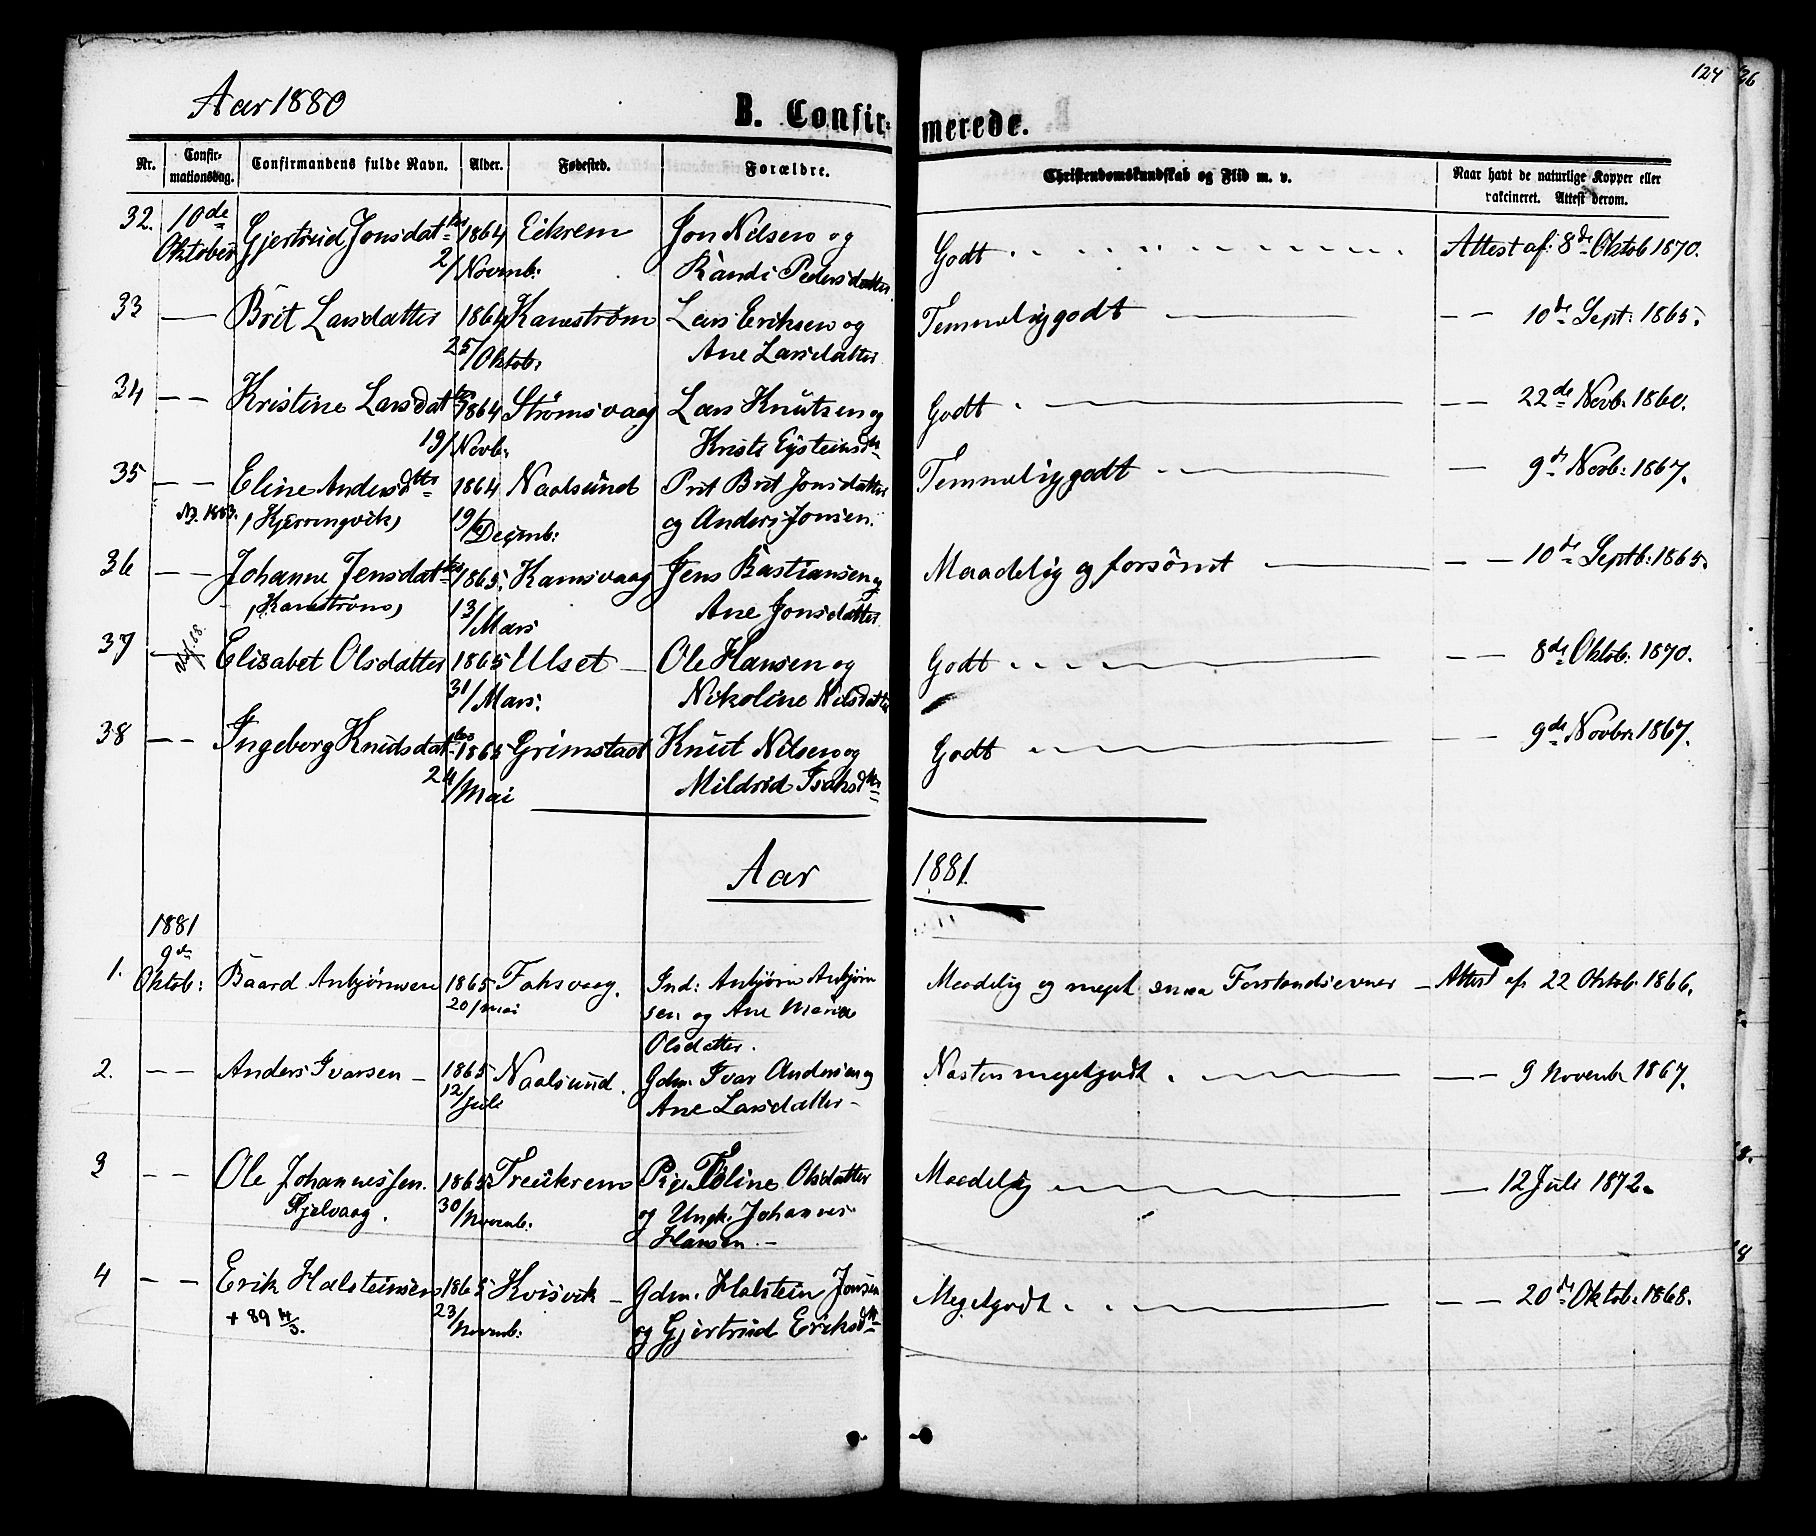 124
26
Aar 1880
B. Confirmerede.
Nr. Confirmationsdag. Confirmandens fulde Navn. Alder. Fødested. Forældre. Christendomskundskab og Flid m. v. Naar havt de naturlige Kopper eller vakcineret. Attest derom.
32. 10de Oktober Gjertrud Jonsdatter 1864 Eikrem Jon Nilsen og Godt Attest af 8de Oktob 1870.
2/Novmb: Randi Pedersdatter
33 — Brit Larsdatter 1864 Kanestrøm Lars Eriksen og Temmelig godt — — — 10de Sept: 1865.
25/Oktob: Ane Larsdatter
34 — — Kristine Larsdatter 1864 Strømsvaag Lars Knutsen og Godt — — — 22de Novb. 1860.
19/Novb: Kristi Eÿsteinsdtr
35 — — Eline Andersdtter 1864 Naalsund Prt Brit Jonsdatter Temmelig godt — — 9de Novb: 1867.
(Kjerringvik) 19/Decmb: og Anders Jonsen.
36 — — Johanne Jensdatter 1865. Kamsvaag Jens Bastiansen og Maadelig og forsömt — — — 10de Septb: 1865.
(Kanestrøm) 13/Mars Ane Jonsdatter
37 — Elisabet Olsdatter 1865 Ulset — Ole Hansen og Godt — — — 8de Oktob: 1870.
31/Mars: Nikoline Nilsdatter
38 — — Ingeborg Knudsdatter 1865 Grimstad Knut Nilsen og Godt — — — 9de Novbr 1867.
24/Mai Mildrid Isaksdtr
Aar 1881.
1881
9de
1. Oktob: Baard Anbjørnsen 1865 Foksvaag. Ind: Anbjørn Anbjørn Maadelig og meget smaa Forstandsevner — Attest af 22 Oktob. 1866.
20/mai sen og Ane Marie
Olsdatter.
2. — — Anders Ivarsen — 1865 Naalsund. Gdm. Ivar Andersen og Næsten megetgodt. — — — 9 Novemb 1867.
12/Juli Ane Larsdatter —
3 — — Ole Johannessen. 1865 Treekrem Pige Eline Olsdatter Maadelig — — 12 Juli 1872.
Fjelvaag. 30/Novemb: og Ungk. Johannes
Hansen. —
4 — — Erik Halsteinsen 1865 Kvisvik — Gdm. Halstein Jonsen Megetgodt. — — — 20de Oktob. 1868.
+ 89 4/3. 23/Novemb: og Gjertrud Eriksdtr